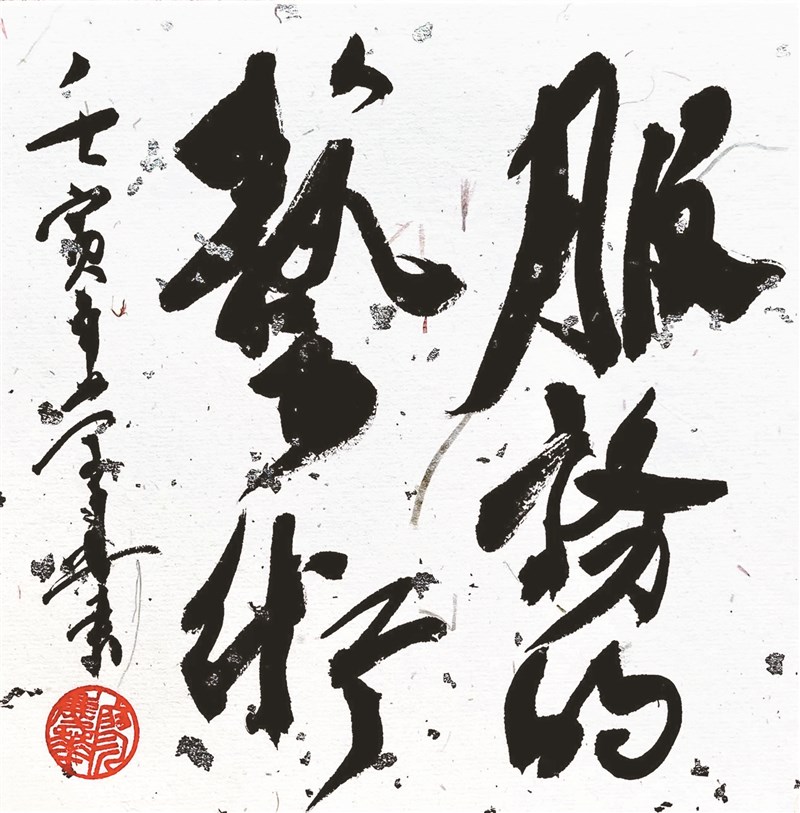 服務的
藝術
壬寅年